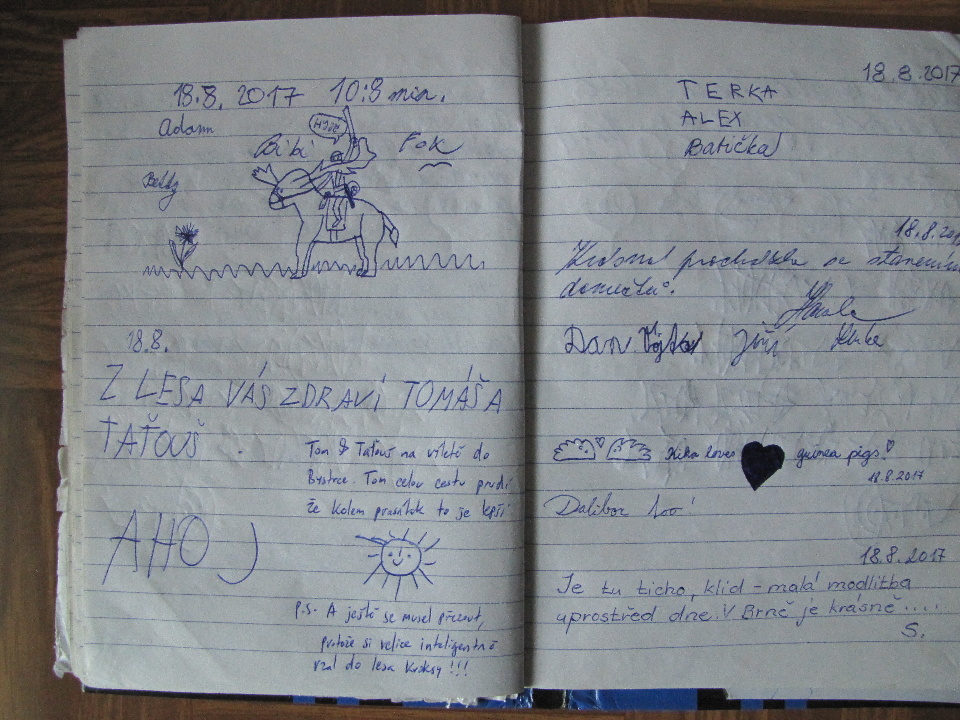 18.8. 2017 10:8 min.
Adam
Bibi
Fok
18.8.
Z LESA VÁS ZDRAVÍ TOMÁŠ A
TAŤOUŠ
Tom & Taťouš na výletě do
Bystrce. Tom celou cestu prudí
že kolem prasátek to je lepší
AHOJ
P.S. A ještě se musel přezout,
protože si velice inteligentně
vzal do lesa kroksy!!!
18.8.2017
TERKA
ALEX
Batička
18.8.201
Krásná procházka se
Dan Vojta Jiří
Kika loves guinea pigs!
18.8.2017
Dalibor
18.8.2017
Je tu ticho, klid - malá modlitba
uprostřed dne. V Brně je krásně ....
S.